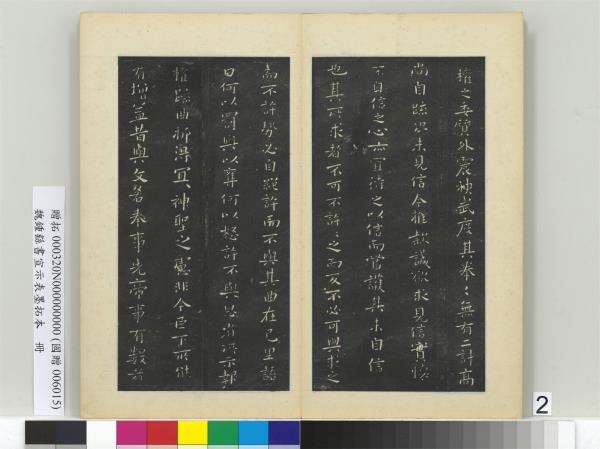 權之委質外震神武度其拳々無有二計高
尚自疏況未見信今推款誠欲求見信實懷
不自信之心亦宜待之以信而當護其未自信
也其所求者不可不許許之而反不必可與求之
而不許勢必自絕許而不與其曲在己里語
曰何以罰與以奪何以怒許不與思省所示報
權疏曲折得宜神聖之慮非今臣下所能
有增益昔與文若奉事先帝事有數者
贈拓 000320N000000000 (國贈 006015)
魏鍾繇書宣示表墨拓本 冊
2